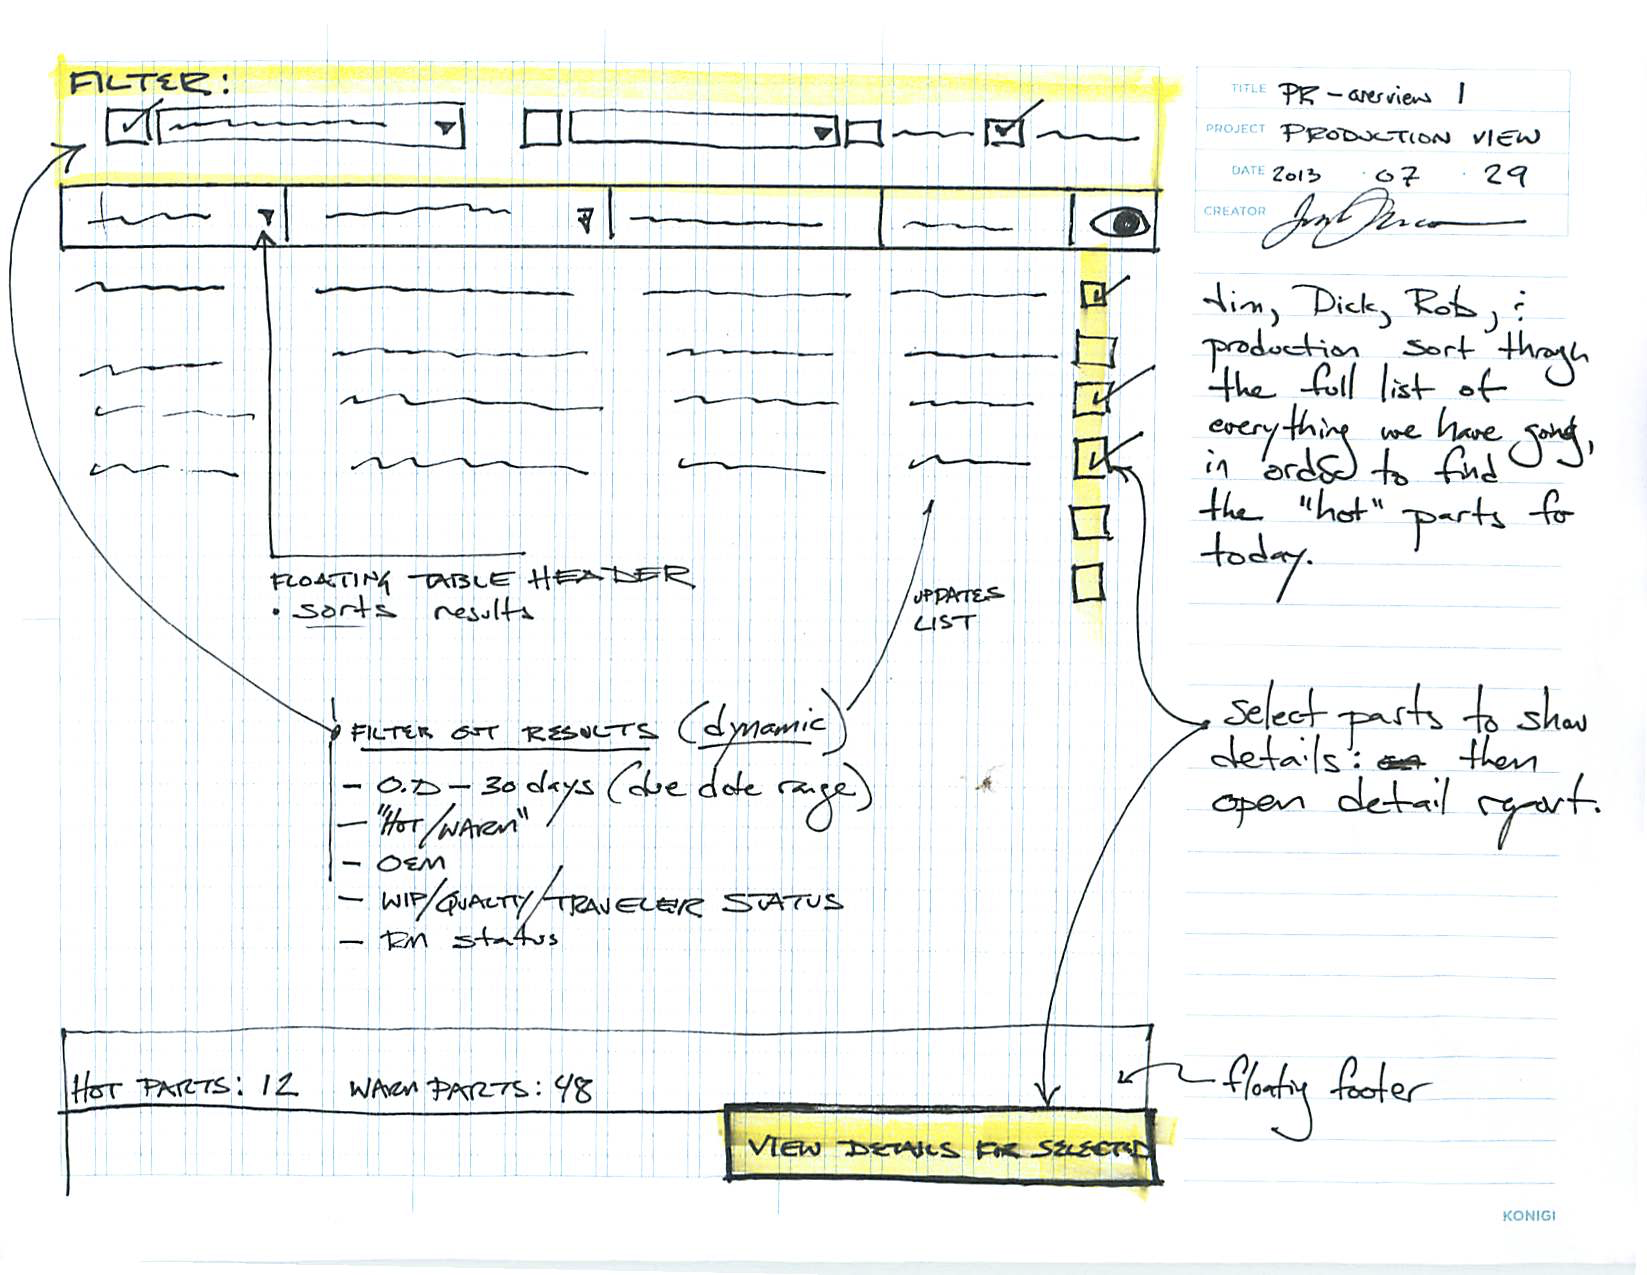 FILTER:
TITLE PR-overview 1
PROJECT PRODUCTION VIEW
DATE 2013 · 07 · 29
CREATOR
Jim, Dick, Rob, &
production sort through
the full list of
everything we have going,
in order to find
the "hot" parts for
today.
FLOATING TABLE HEADER
• sorts results
UPDATES
LIST
FILTER OUT RESULTS (dynamic)
- O.D - 30 days (due date range)
- "HOT/WARM"
- OEM
- WIP/QUALTY/TRAVELER STATUS
- RM status
Select parts to show
details: then
open detail report.
HOT PARTS: 12 WARM PARTS: 48
floatig footer
VIEW DETAILS FOR SELECTED
KONIGI